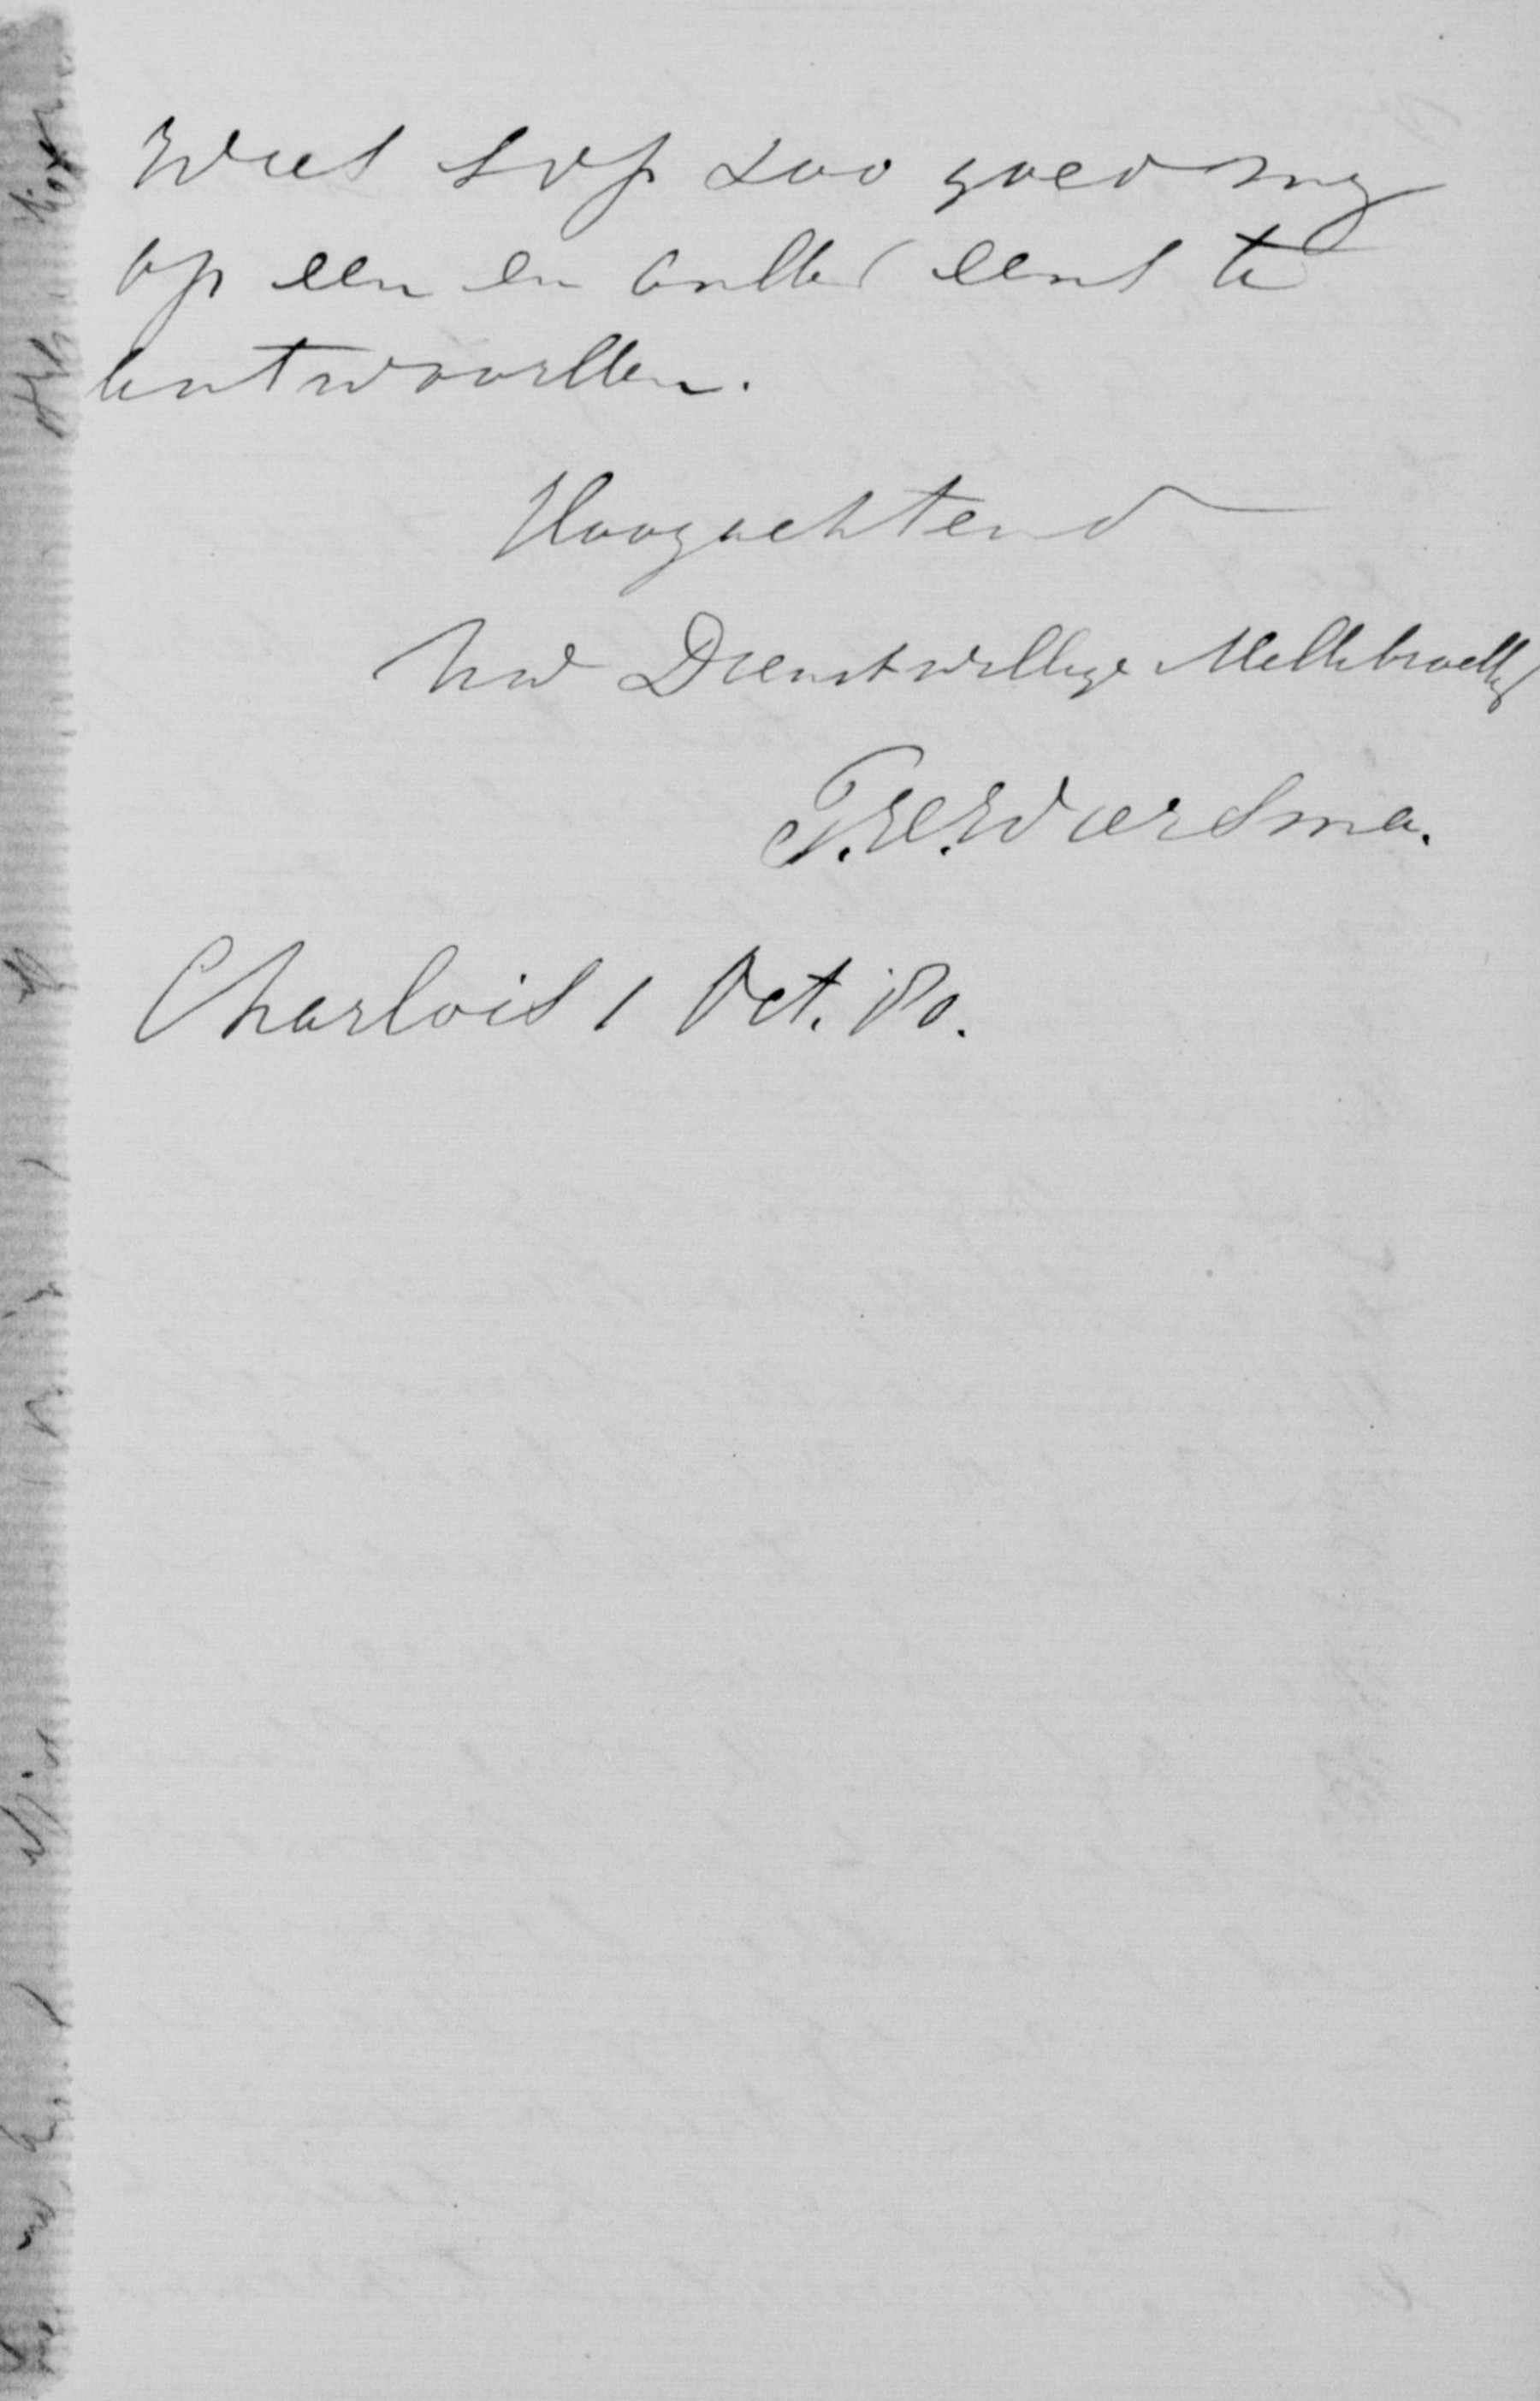 Wees svp zoo goed my
op een en ander eens te
antwoorden.
Hoogachtend
Uw Dienstwillige Medebroeder
T. E. Wiersma.
Charlois 1 Oct. '80.